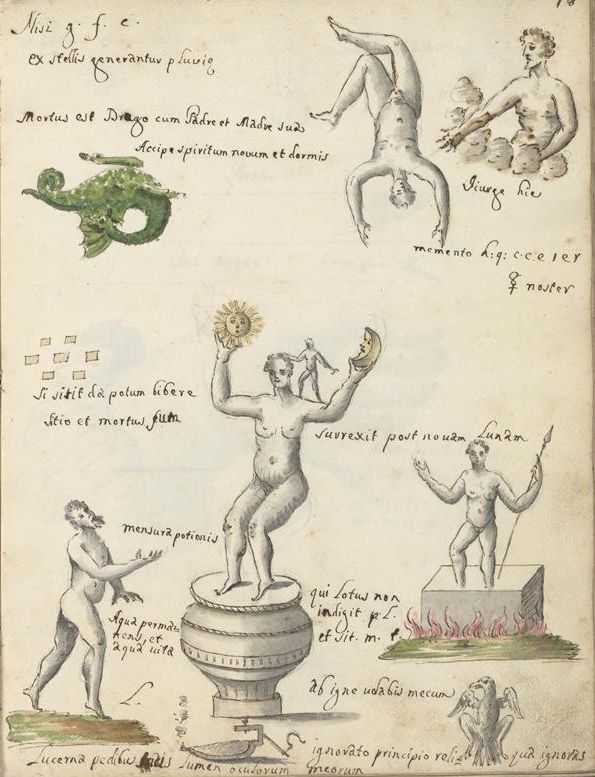 Nisi g. f. c.
ex stellis generantur pluvię
Mortus est Drago cum Padre et Madre sua
Accipe spiritum novum et dormis
Siurge hic
memento h: q: c. c. e I e r
♀ noster
Si sitit da potum bibere
sitio et mortus sum
surrexit post novam Lunam
mensura potionis
qui Lotus non
indigit p. L.
et sit. m. f.
Aqua perma=
nens, et
aqua vita
L.
ab igne volabis mecum
Lucerna pedibus Lumen oculorum meorum
ignorato principio reliqua ignoras